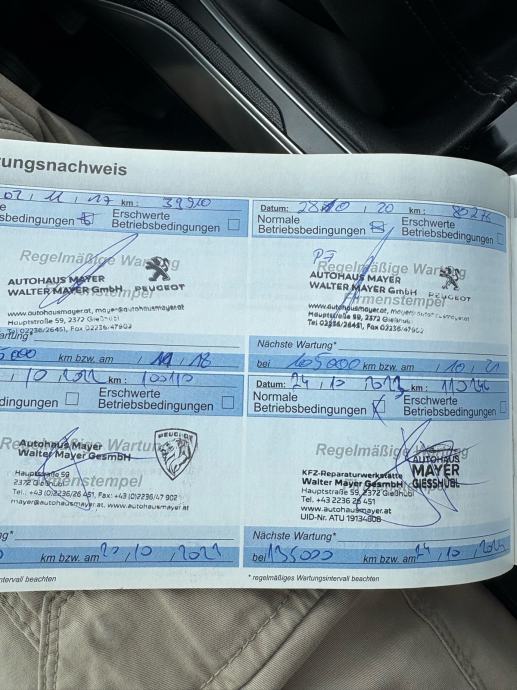 rungsnachweis
02, 11, 17 km: 39910
e
sbedingungen
Erschwerte
Betriebsbedingungen
Regelmäßige Wartung
AUTOHAUS MAYER
WALTER MAYER GmbH PEUGEOT
www.autohausmayer.at, mayer@autohausmayer.at
Hauptstraße 59, 2372 Gießhübl
Tel 02236/26451, Fax 02236/47902
artung*
5000 km bzw. am , 11, 18
Datum: 28 10, 20 km: 80276
Normale
Betriebsbedingungen
Erschwerte
Betriebsbedingungen
Regelmäßige Wartung
AUTOHAUS MAYER
WALTER MAYER GmbH PEUGEOT
Firmenstempel
www.autohausmayer.at,
Hauptstraße 59, 2372 Gießhübl
Tel 02236/26451, Fax 02236/47902
Nächste Wartung*
bei 105000 km bzw. am , 10, 21
, 10, 2022 km: 100110
dingungen
Erschwerte
Betriebsbedingungen
Regelmäßige Wartung
Autohaus Mayer
Walter Mayer GesmbH
PEUGEOT
Hauptstraße 59
2372 Gießhübl
Firmenstempel
Tel.: +43 (0)2236/26 451, Fax: +43 (0)2236/47 902
mayer@autohausmayer.at, www.autohausmayer.at
ng*
km bzw. am
Datum: 24, 10, 2023 km:
Normale
Betriebsbedingungen
Erschwerte
Betriebsbedingungen
Regelmäßige Wartung
AUTOHAUS
MAYER
GIESSHÜBL
KFZ-Reparaturwerkstätte
Walter Mayer GesmbH
Hauptstraße 59, 2372 Gießhübl
Tel. +43 2236 26 451
www.autohausmayer.at
UID-Nr. ATU 19134808
Nächste Wartung*
bei 135000 km bzw. am 24, 10, 2024
ntervall beachten
* regelmäßiges Wartungsintervall beachten